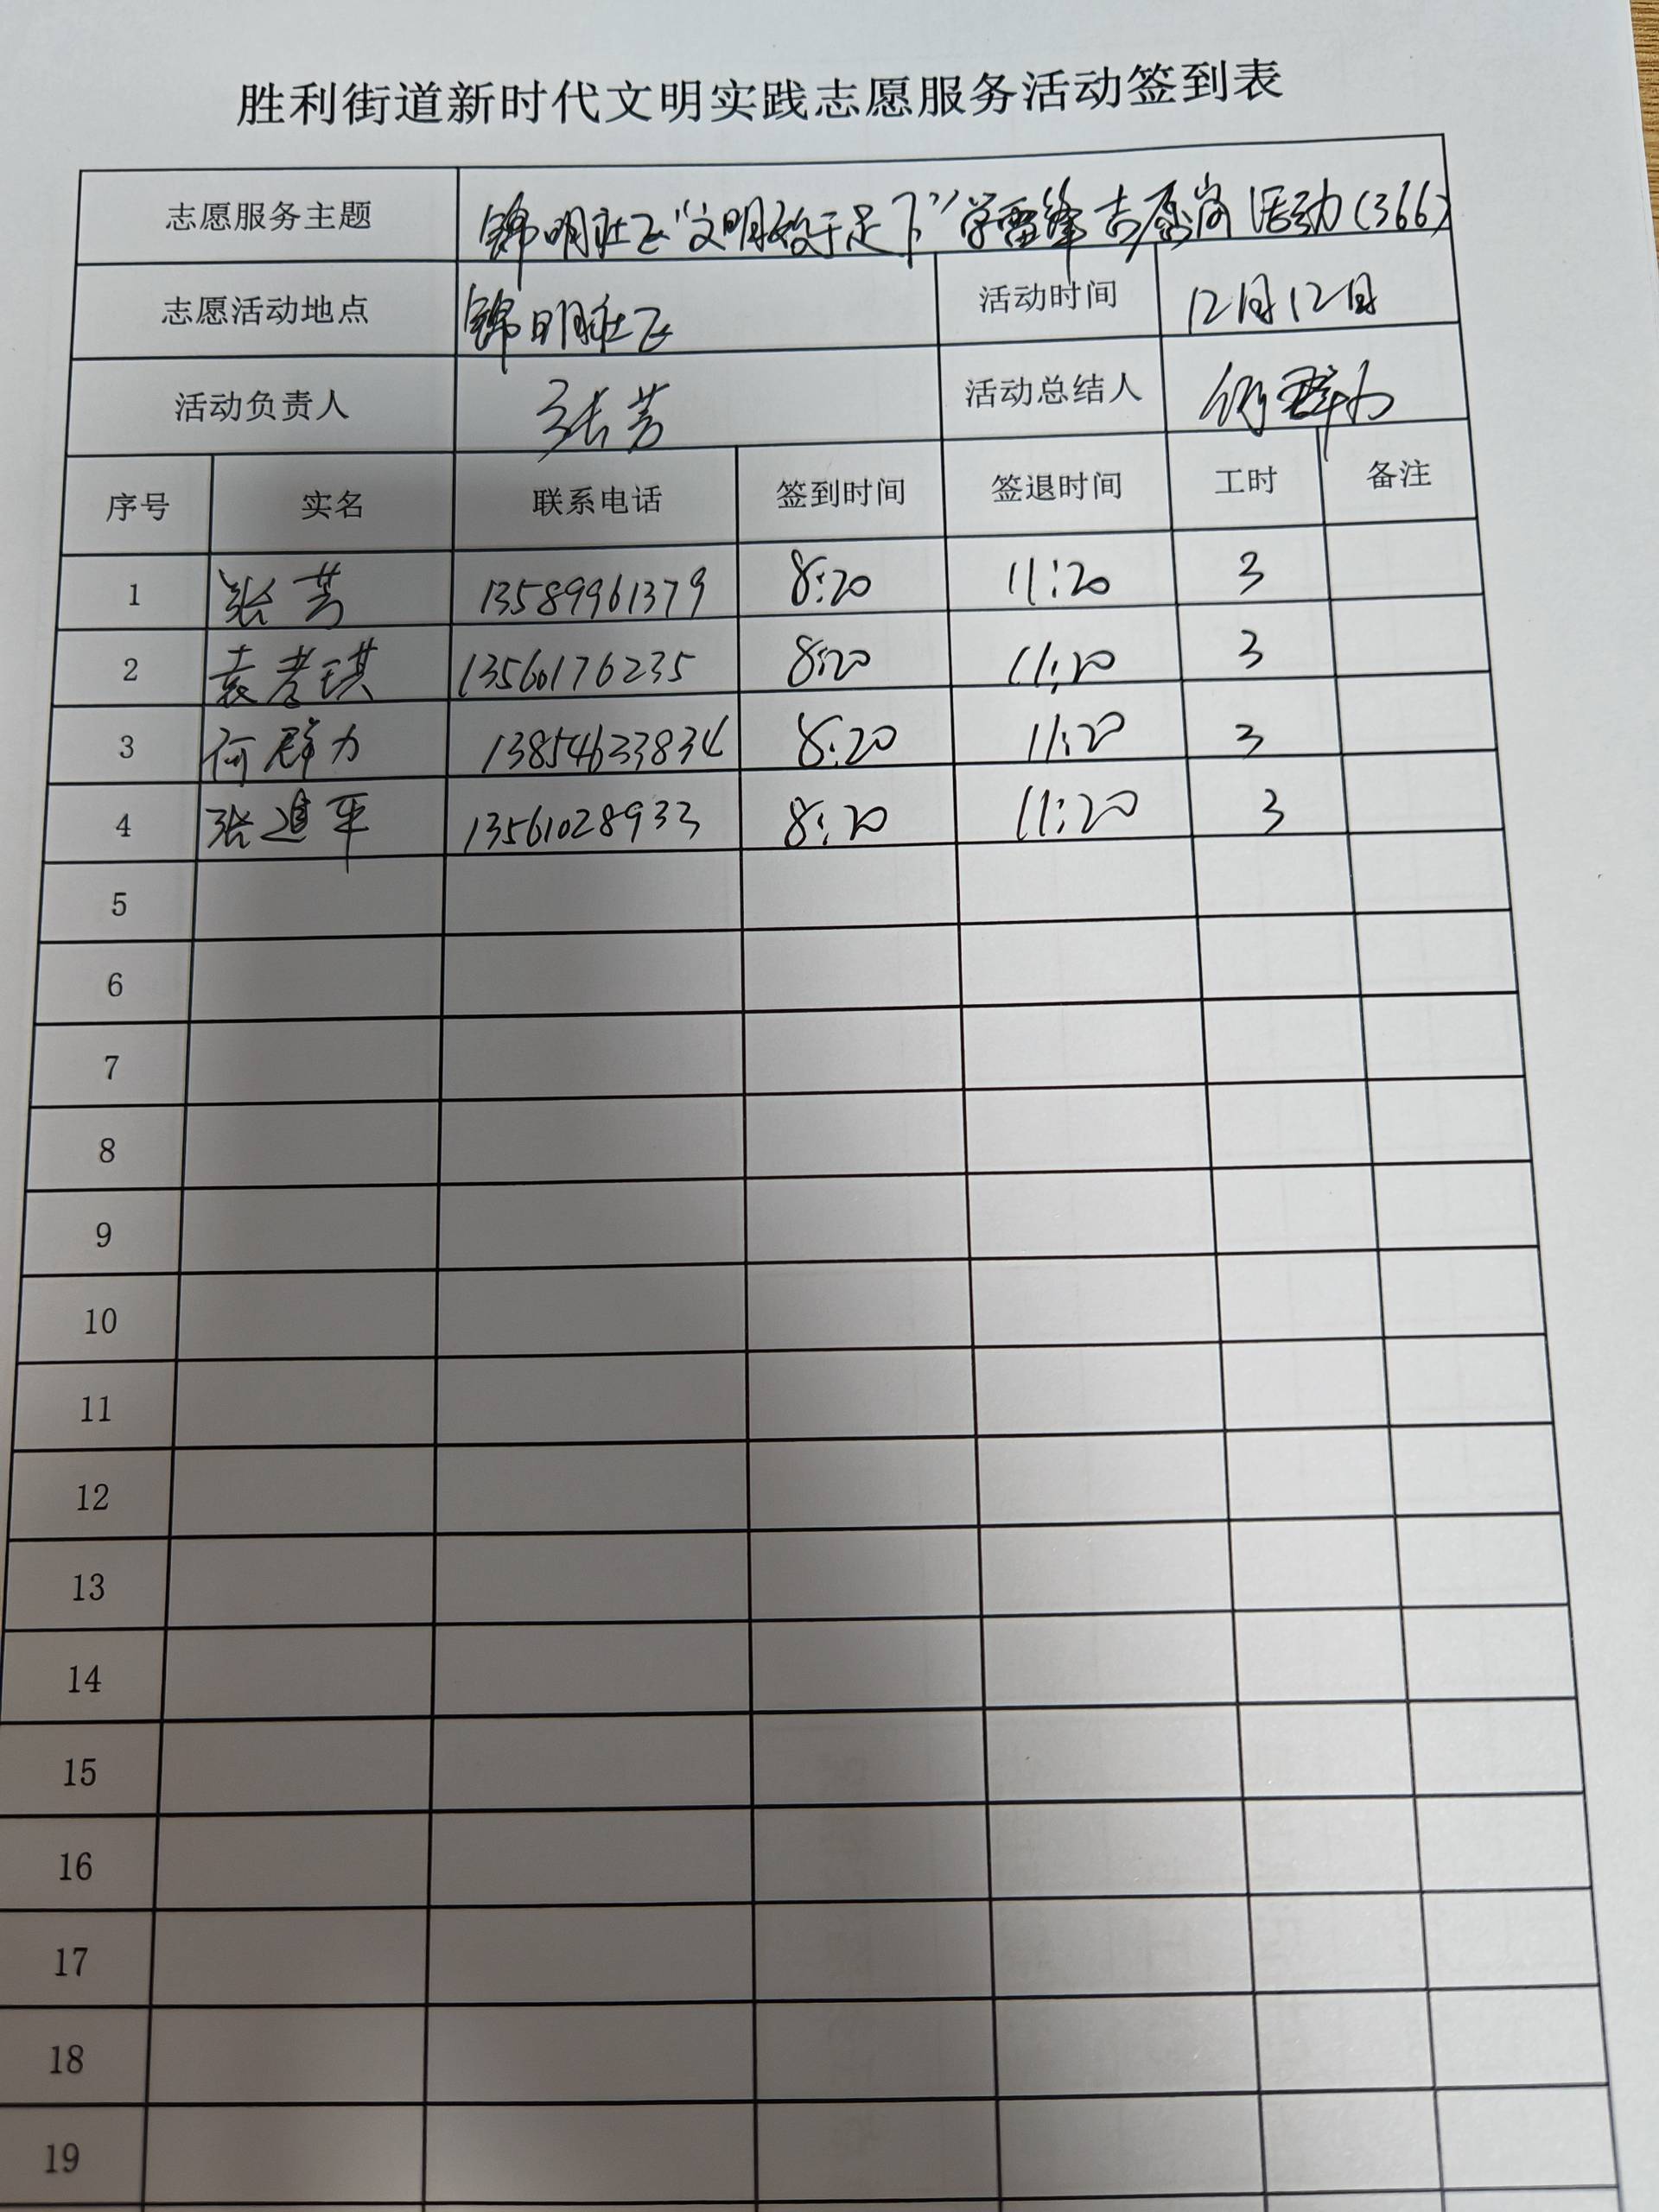 胜利街道新时代文明实践志愿服务活动签到表
志愿服务主题 锦明社区"文明始于足下"学雷锋志愿岗活动(366)
志愿活动地点 锦明社区 活动时间 12月12日
活动负责人 张芳 活动总结人 何群力
序号 实名 联系电话 签到时间 签退时间 工时 备注
1 张芳 13589961379 8:20 11:20 3
2 袁孝琪 13560176235 8:20 11:20 3
3 何群力 13854633834 8:20 11:20 3
4 张道平 13561028933 8:20 11:20 3
5
6
7
8
9
10
11
12
13
14
15
16
17
18
19